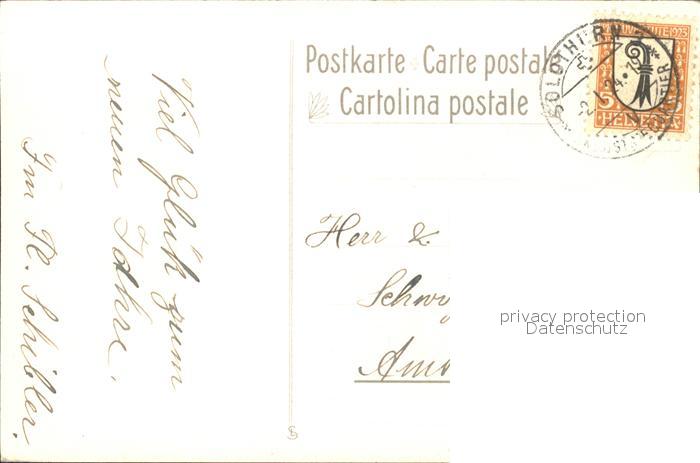 Viel Glük zum
neuen Jahre.
Fm R. Schibler.
Postkarte Carte postale
Cartolina postale
SOLOTHURN 1
JUVENTUTE 1923
5
HELVETIA
Herr &
Schwy
Ams
privacy protection
Datenschutz